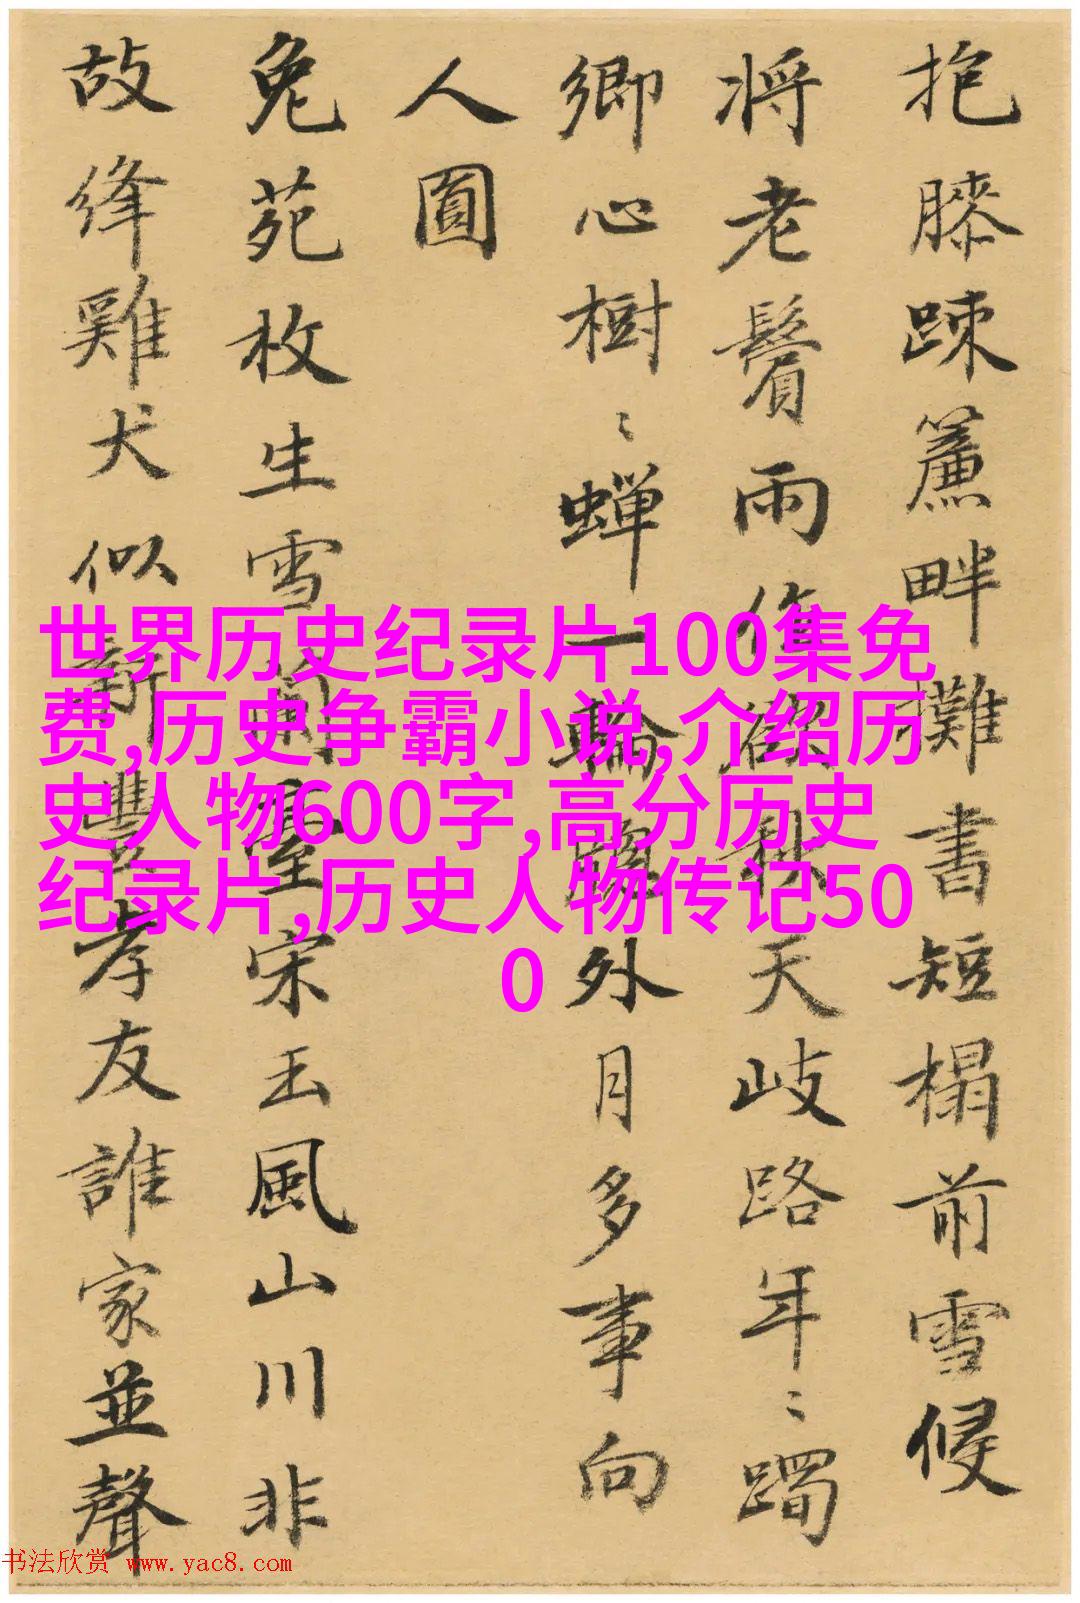 抱膝踈簾畔攤書短榻前雪侵
将老鬢雨催欲秋天岐路年〻躅
鄉心樹〻蝉一輪窓外月多事向
人圓
兔苑枚生雪蘭臺宋玉風山川非
故絳雞犬似新豐孝友誰家並聲
世界历史纪录片100集免
费,历史争霸小说,介绍历
史人物600字,高分历史
纪录片,历史人物传记50
0
书法欣赏 www.yac8.com